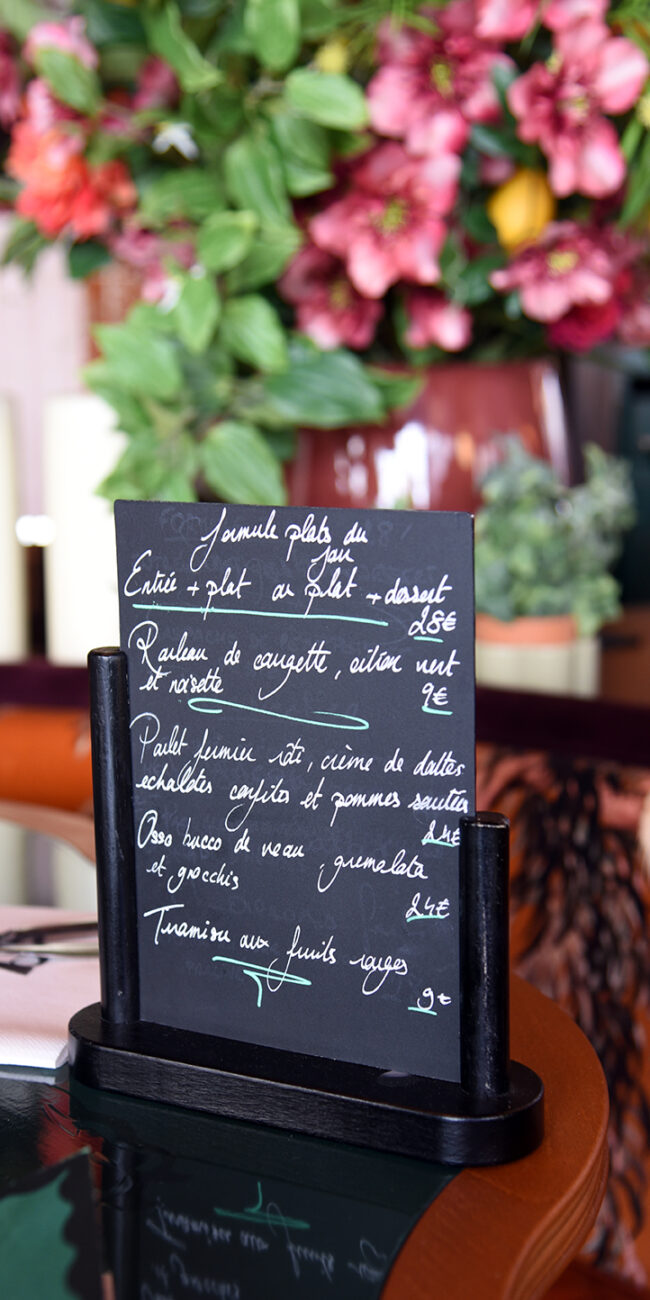 Formule plats du
jour
Entrée + plat ou plat + dessert
28€
Rouleau de courgette, citron vert
et noisette
9€
Poulet fermier rôti, crème de dattes
echalotes confites et pommes sautées
24€
Osso bucco de veau, gremolata
et gnocchis
24€
Tiramisu aux fruits rouges
9€